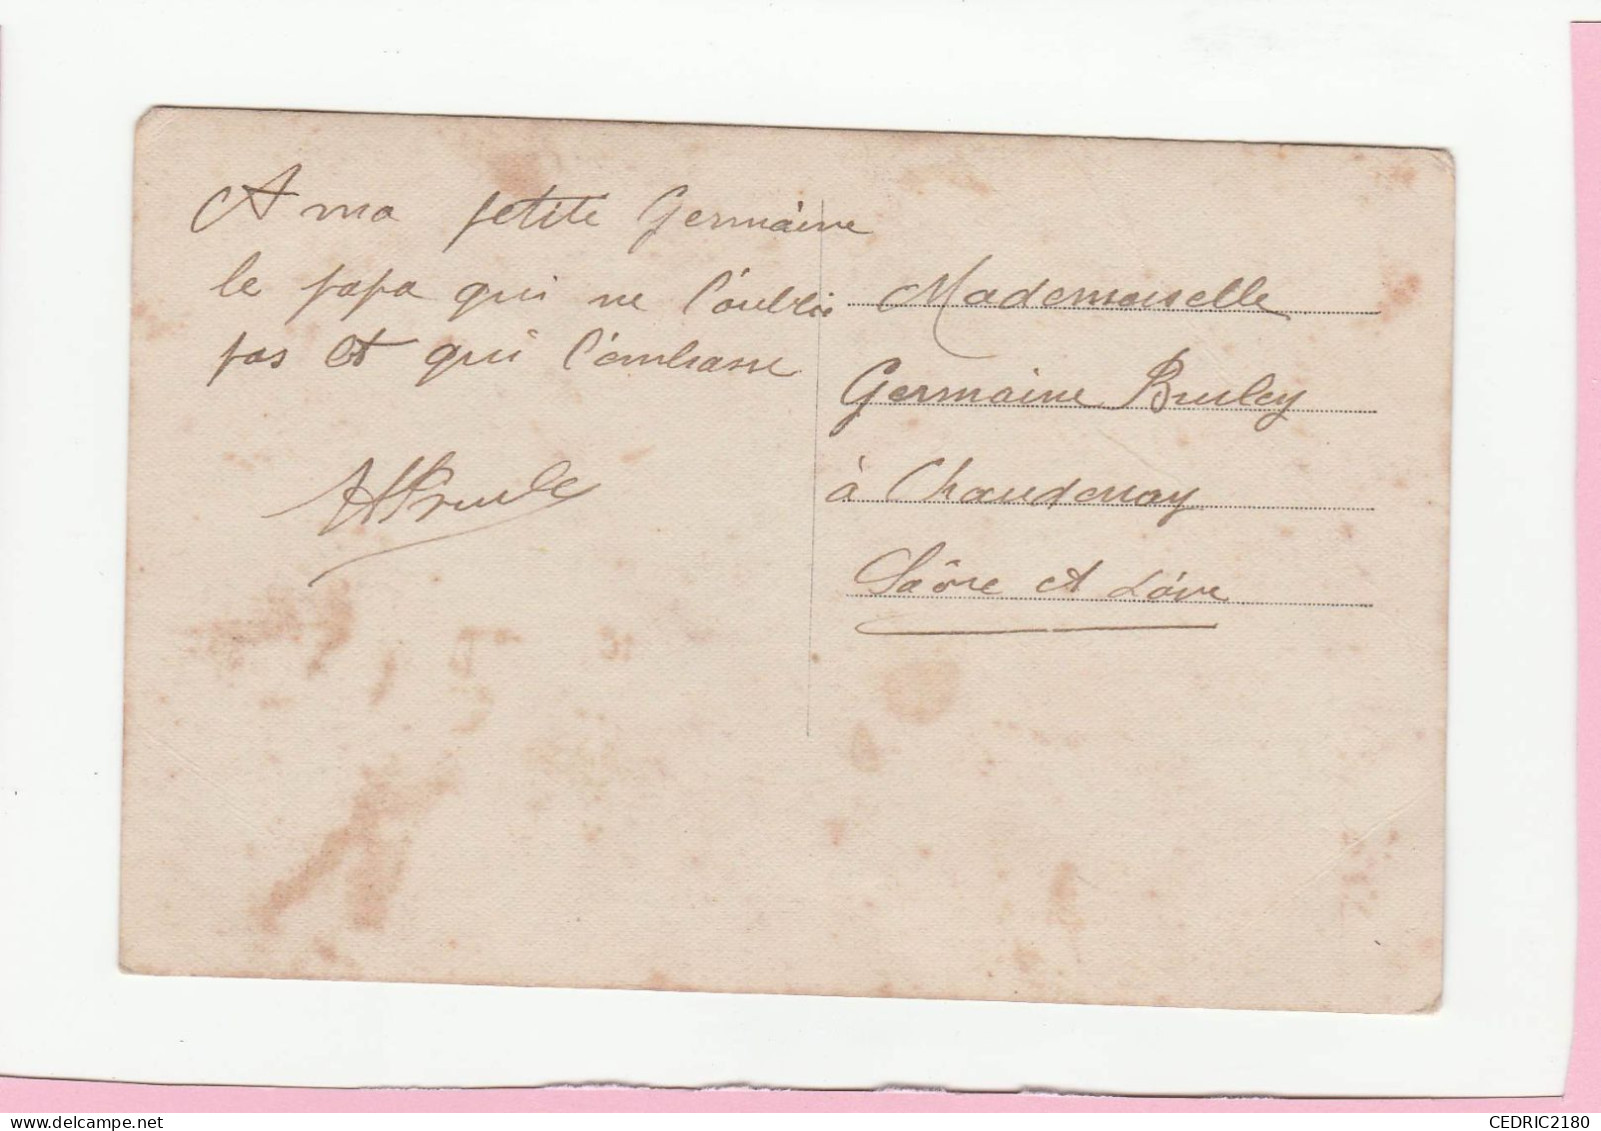 A ma petite Germaine
le papa qui ne l'oublie
pas et qui l'embrasse
Mademoiselle
Germaine Bruley
à Chaudenay
Saône et Loire
CEDRIC2180